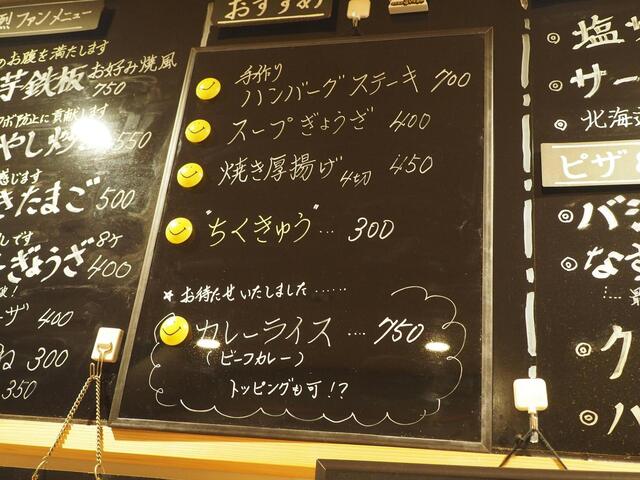 烈ファンメニュー
のお腹を満たします
芋鉄板 お好み焼風
750
ボ防止に貢献します
やし炒め 550
感じます
きたまご 500
しです 8ケ
ぎょうざ 400
ーザ 400
ね 300
350
おすすめ
手作り
ハンバーグステーキ 700
スープぎょうざ 400
焼き厚揚げ 4切 450
"ちくきゅう"… 300
★ お待たせいたしました……
カレーライス …. 750
(ビーフカレー)
トッピングも可!?
◎ 塩
◎ サー
◎ 北海道
ピザ
◎ バ
◎ なす
◎ ク
◎ ハ